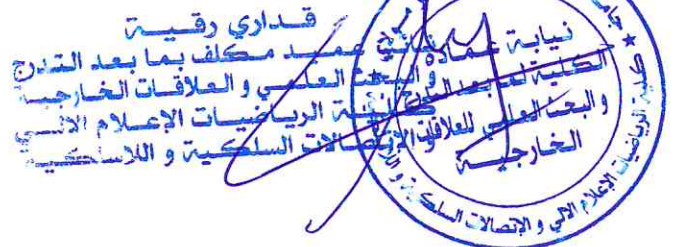 قداري رقية
نائب عميد مكلف بما بعد التدرج
و البحث العلمي و العلاقات الخارجية
كلية الرياضيات الإعلام الآلي
الإتصالات السلكية و اللاسلكية
نيابة عمادة
الكلية لما بعد التدرج
والبحث العلمي للعلاقات
الخارجية
كلية الرياضيات الإعلام الآلي و الإتصالات السلكية و